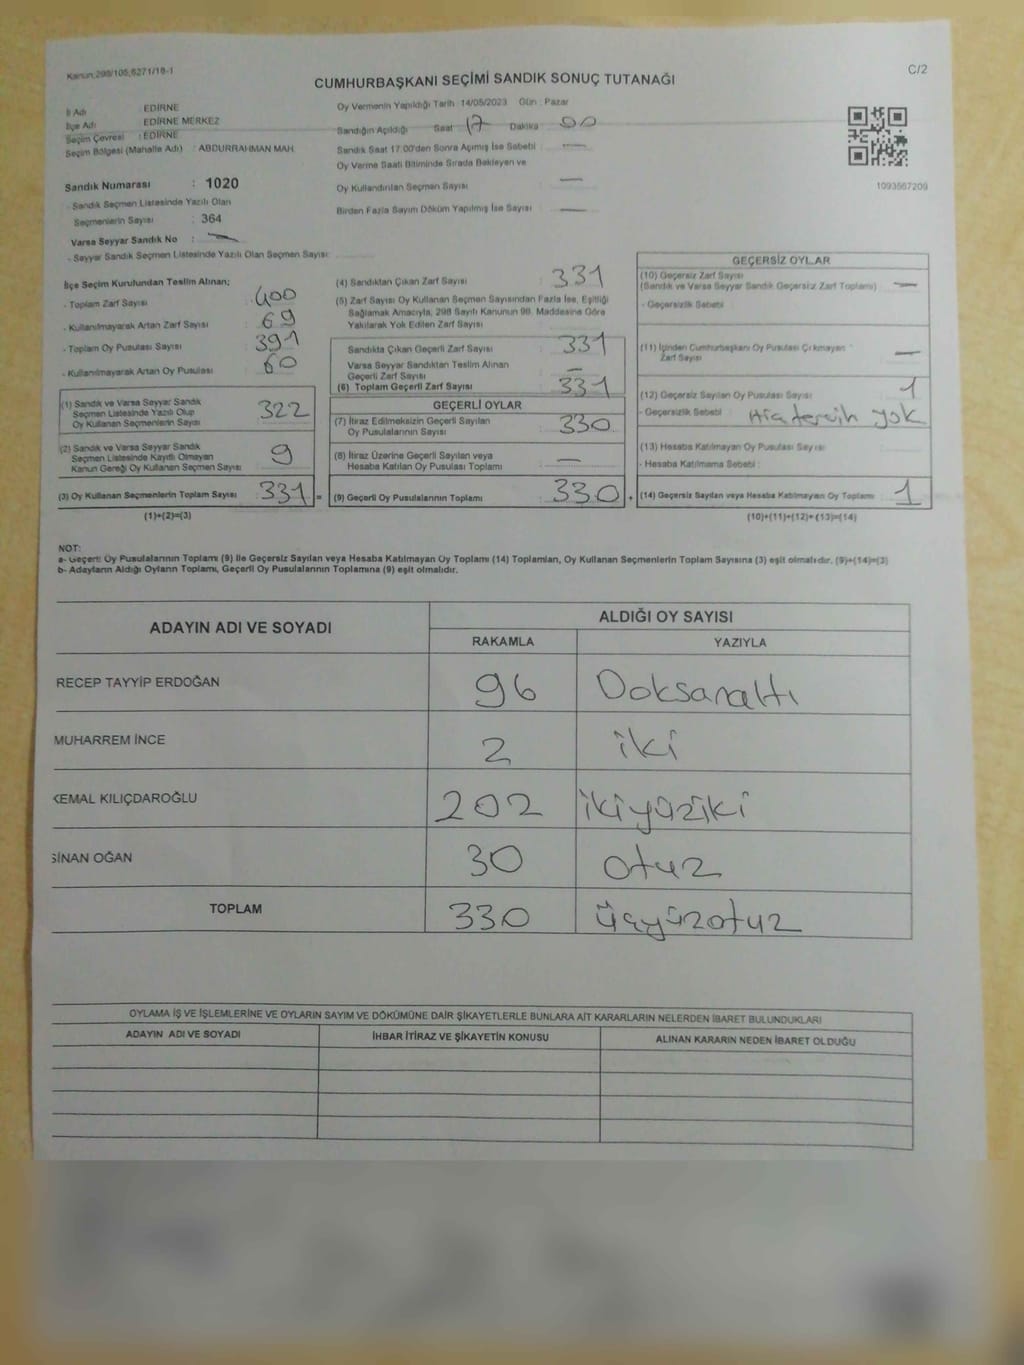 Kanun:298/105,6271/16-1
C/2
CUMHURBAŞKANI SEÇİMİ SANDIK SONUÇ TUTANAĞI
İl Adı : EDİRNE
İlçe Adı : EDİRNE MERKEZ
Seçim Çevresi : EDİRNE
Seçim Bölgesi (Mahalle Adı) : ABDURRAHMAN MAH.
Sandık Numarası : 1020
- Sandık Seçmen Listesinde Yazılı Olan
Seçmenlerin Sayısı : 364
Varsa Seyyar Sandık No : —
- Seyyar Sandık Seçmen Listesinde Yazılı Olan Seçmen Sayısı:
Oy Vermenin Yapıldığı Tarih :14/05/2023 Gün : Pazar
Sandığın Açıldığı Saat 17 Dakika 00
Sandık Saat 17:00'den Sonra Açımış İse Sebebi : —
Oy Verme Saati Bitiminde Sırada Bekleyen ve
Oy Kullandırılan Seçmen Sayısı : —
Birden Fazla Sayım Döküm Yapılmış İse Sayısı : —
1093567209
İlçe Seçim Kurulundan Teslim Alınan;
- Toplam Zarf Sayısı : 400
- Kullanılmayarak Artan Zarf Sayısı : 69
- Toplam Oy Pusulası Sayısı : 391
- Kullanılmayarak Artan Oy Pusulası : 60
(1) Sandık ve Varsa Seyyar Sandık
Seçmen Listesinde Yazılı Olup
Oy Kullanan Seçmenlerin Sayısı : 322
(2) Sandık ve Varsa Seyyar Sandık
Seçmen Listesinde Kayıtlı Olmayan
Kanun Gereği Oy Kullanan Seçmen Sayısı : 9
(3) Oy Kullanan Seçmenlerin Toplam Sayısı : 331 =
(1)+(2)=(3)
(4) Sandıktan Çıkan Zarf Sayısı : 331
(5) Zarf Sayısı Oy Kullanan Seçmen Sayısından Fazla İse, Eşitliği
Sağlamak Amacıyla, 298 Sayılı Kanunun 98. Maddesine Göre
Yakılarak Yok Edilen Zarf Sayısı :
Sandıkta Çıkan Geçerli Zarf Sayısı : 331
Varsa Seyyar Sandıktan Teslim Alınan
Geçerli Zarf Sayısı : —
(6) Toplam Geçerli Zarf Sayısı : 331
GEÇERLİ OYLAR
(7) İtiraz Edilmeksizin Geçerli Sayılan
Oy Pusulalarının Sayısı : 330
(8) İtiraz Üzerine Geçerli Sayılan veya
Hesaba Katılan Oy Pusulası Toplamı : —
(9) Geçerli Oy Pusulalarının Toplamı : 330 +
GEÇERSİZ OYLAR
(10) Geçersiz Zarf Sayısı
(Sandık ve Varsa Seyyar Sandık Geçersiz Zarf Toplamı) : —
- Geçersizlik Sebebi :
(11) İçinden Cumhurbaşkanı Oy Pusulası Çıkmayan
Zarf Sayısı : —
(12) Geçersiz Sayılan Oy Pusulası Sayısı : 1
- Geçersizlik Sebebi : Hiç tercih yok
(13) Hesaba Katılmayan Oy Pusulası Sayısı :
- Hesaba Katılmama Sebebi :
(14) Geçersiz Sayılan veya Hesaba Katılmayan Oy Toplamı : 1
(10)+(11)+(12)+(13)=(14)
NOT:
a- Geçerli Oy Pusulalarının Toplamı (9) ile Geçersiz Sayılan veya Hesaba Katılmayan Oy Toplamı (14) Toplamları, Oy Kullanan Seçmenlerin Toplam Sayısına (3) eşit olmalıdır. (9)+(14)=(3)
b- Adayların Aldığı Oyların Toplamı, Geçerli Oy Pusulalarının Toplamına (9) eşit olmalıdır.
ADAYIN ADI VE SOYADI
ALDIĞI OY SAYISI
RAKAMLA YAZIYLA
RECEP TAYYİP ERDOĞAN 96 Doksanaltı
MUHARREM İNCE 2 iki
KEMAL KILIÇDAROĞLU 202 ikiyüziki
SİNAN OĞAN 30 otuz
TOPLAM 330 üçyüzotuz
OYLAMA İŞ VE İŞLEMLERİNE VE OYLARIN SAYIM VE DÖKÜMÜNE DAİR ŞİKAYETLERLE BUNLARA AİT KARARLARIN NELERDEN İBARET BULUNDUKLARI
ADAYIN ADI VE SOYADI İHBAR İTİRAZ VE ŞİKAYETİN KONUSU ALINAN KARARIN NEDEN İBARET OLDUĞU